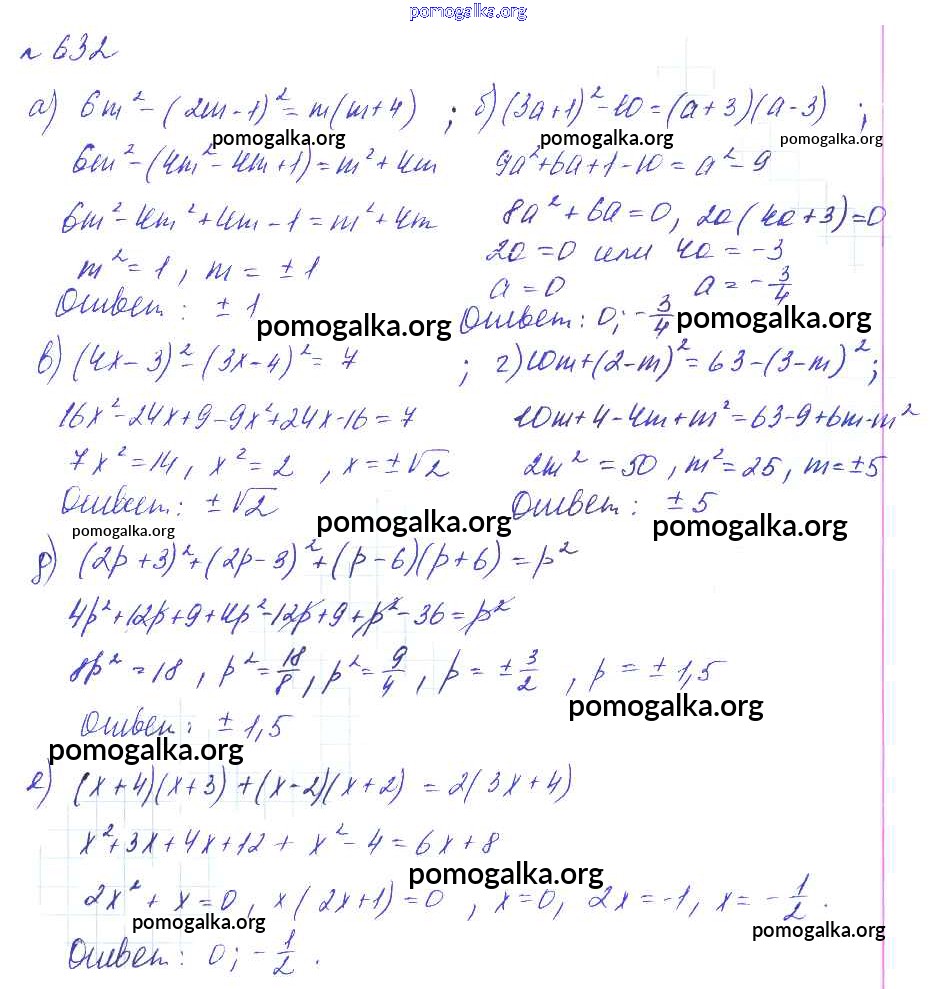 pomogalka.org
№ 632
а) 6m² - (2m - 1)² = m(m + 4) ; б) (3a + 1)² - 10 = (a + 3)(a - 3) ;
pomogalka.org pomogalka.org pomogalka.org
6m² - (4m² - 4m + 1) = m² + 4m 9a² + 6a + 1 - 10 = a² - 9
6m² - 4m² + 4m - 1 = m² + 4m 8a² + 6a = 0, 2a(4a + 3) = 0
m² = 1, m = ± 1 2a = 0 или 4a = -3
Ответ: ± 1 a = 0 a = -3/4
Ответ: 0; -3/4
pomogalka.org pomogalka.org
в) (4x - 3)² - (3x - 4)² = 7 ; г) 10m + (2 - m)² = 63 - (3 - m)² ;
16x² - 24x + 9 - 9x² + 24x - 16 = 7 10m + 4 - 4m + m² = 63 - 9 + 6m - m²
7x² = 14, x² = 2, x = ±√2 2m² = 50, m² = 25, m = ±5
Ответ: ±√2 Ответ: ± 5
pomogalka.org pomogalka.org pomogalka.org
д) (2p + 3)² + (2p - 3)² + (p - 6)(p + 6) = p²
4p² + 12p + 9 + 4p² - 12p + 9 + p² - 36 = p²
8p² = 18, p² = 18/8, p² = 9/4, p = ± 3/2, p = ± 1,5
pomogalka.org
Ответ: ± 1,5
pomogalka.org
е) (x + 4)(x + 3) + (x - 2)(x + 2) = 2(3x + 4)
x² + 3x + 4x + 12 + x² - 4 = 6x + 8
pomogalka.org
2x² + x = 0, x(2x + 1) = 0, x = 0, 2x = -1, x = -1/2.
pomogalka.org pomogalka.org
Ответ: 0; -1/2.